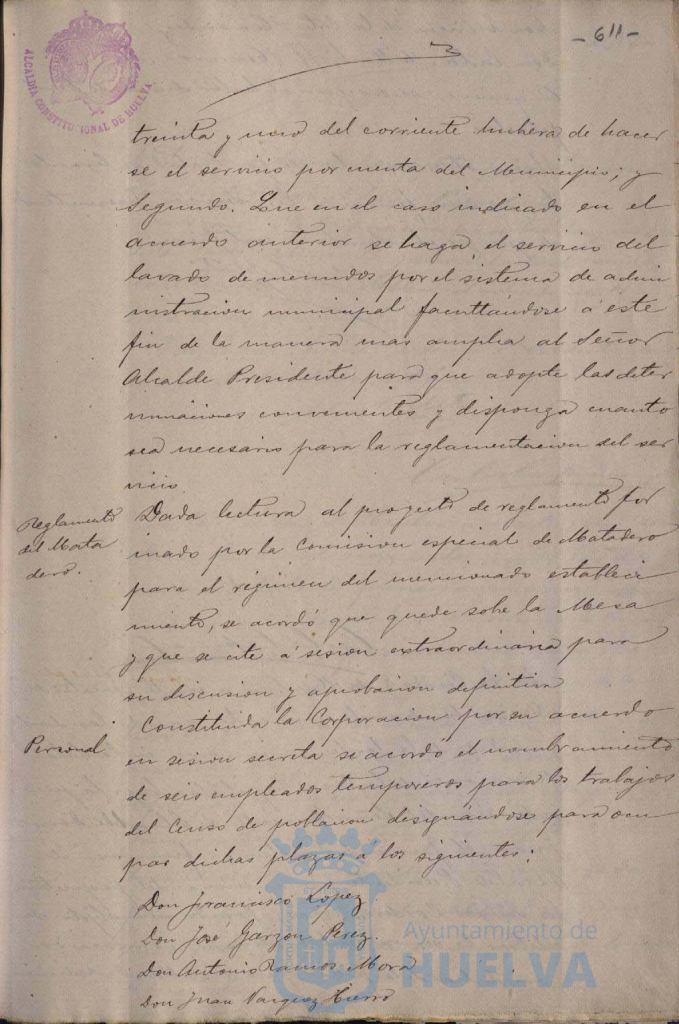 - 611 -
ALCALDIA CONSTITUCIONAL DE HUELVA
treinta y uno del corriente hubiera de hacer
se el servicio por cuenta del Municipio; y
Segundo. Que en el caso indicado en el
acuerdo anterior se haga el servicio del
lavado de menudos por el sistema de admi
nistracion municipal facultándose á este
fin de la manera mas amplia al Señor
Alcalde Presidente para que adopte las deter
minaciones convenientes y disponga cuanto
sea necesario para la reglamentacion del ser
vicio.
Reglamento
del Mata
dero.
Dada lectura al proyecto de reglamento for
mado por la Comision especial de Matadero
para el régimen del mencionado estableci
miento, se acordó que quede sobre la Mesa
y que se cite á sesion extraordinaria para
su discusion y aprobacion definitiva
Personal
Constituida la Corporacion por su acuerdo
en sesion secreta se acordó el nombramiento
de seis empleados temporeros para los trabajos
del Censo de poblacion designándose para ocu
par dichas plazas á los siguientes:
Don Francisco Lopez
Don José Garzon Perez.
Don Antonio Ramos Mora
Don Juan Vazquez Tierro
Ayuntamiento de
HUELVA